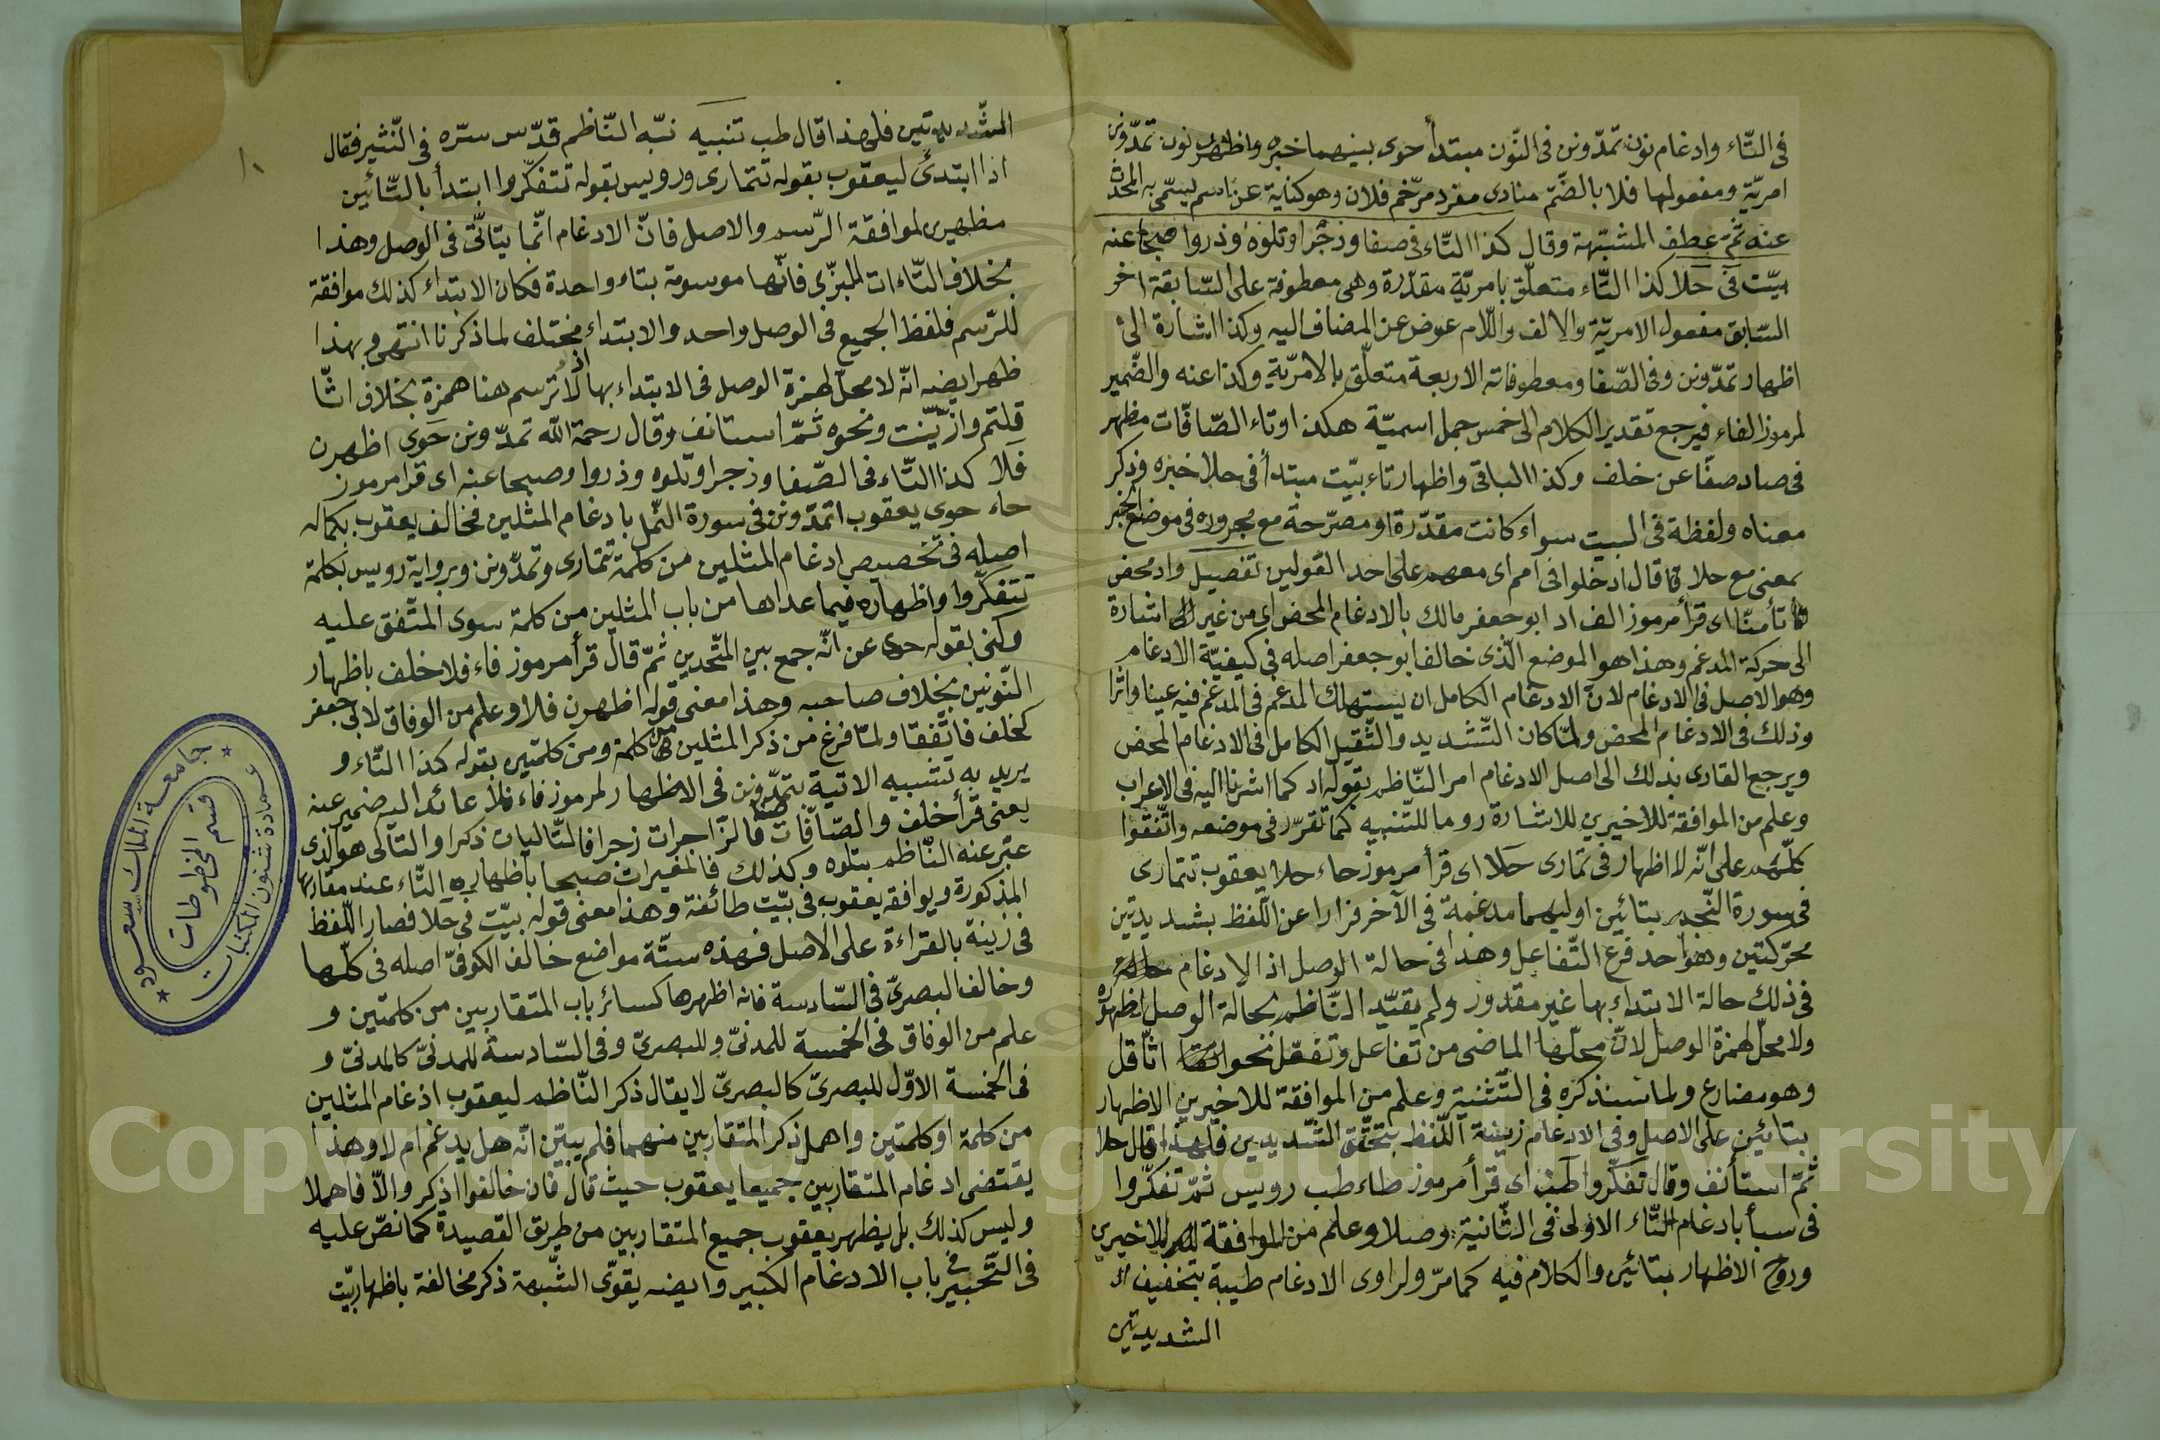 فى التّاء وادغام نون تمدّونن فى النّون مبتدأ حوى بينهما خبره واظهرن نون تمدّونن
امريّة ومفعولها فلا بالضّم منادى مفرد مرّخم فلان وهو كناية عن اسم يسمّى به المحدّث
عنه ثمّ عطف المشبّهة وقال كذا التّاء فى صفا وزجرا وتلوه وذروا صبحا عنه
بيّت فى حلا كذا التّاء متعلّق بامريّة مقدّرة وهى معطوفة على السّابقة اخر
السّابق مفعول الامريّة والالف واللّام عوض عن المضاف اليه وكذا اشارة الى
اظهار تمدّونن وفى الصّفا ومعطوفاته الاربعة متعلّق بالامريّة وكذا عنه والضّمير
لمرموز الفاء فيرجع تقدير الكلام الى خمس جمل اسميّة هكذا وتاء الصّافّات مظهر
فى صاد صفّا عن خلف وكذا الباقى واظهار تاء بيّت مبتدأ فى حلا خبره وذكر
معناه ولفظة فى البيت سواء كانت مقدّرة او مصرّحة مع مجروره فى موضع الخبر
بمعنى مع حلا كما قال ادخلوا فى امم اى معهم على احد القولين تفصيل واد محض
تأمنّا اى قرأ مرموز الف اد ابو جعفر مالك بالادغام المحض اى من غير اشارة
الى حركة المدغم وهذا هو الموضع الّذى خالف ابو جعفر اصله فى كيفيّة الادغام
وهو الاصل فى الادغام لانّ الادغام الكامل ان يستهلك المدغم فى المدغم فيه عينا واثرا
وذلك فى الادغام المحض ولمّا كان التّشديد والثّقيل الكامل فى الادغام المحض
ويرجع القارى بذلك الى اصل الادغام امر النّاظم بقوله اد كما اشرنا اليه فى الاعراب
وعلم من الموافقة للاخيرين للاشارة روما للتّنبيه كما تقرّر فى موضعه واتّفقوا
كلّهم على انّه لا اظهار فى تمارى حلا اى قرأ مرموز حاء حلا يعقوب تتمارى
فى سورة النّجم بتائين اوليهما مدغمة فى الآخر فرارا عن اللّفظ بشديدتين
محرّكتين وهو احد فرع التّفاعل وهذا فى حالة الوصل اذ الادغام
فى ذلك حالة الابتداء بها غير مقدور ولم يقيّد النّاظم بحالة الوصل لظهوره
ولا محلّ لهمزة الوصل لانّ محلّها الماضى من تفاعل وتفعّل نحو اثّاقل
وهو مضارع ولما سنذكره فى التّثنية وعلم من الموافقة للاخيرين الاظهار
بتائين على الاصل وفى الادغام زينة اللّفظ بتحقّق الشّديدين فلهذا قال حلا
ثمّ استأنف وقال تفكّروا طب اى قرأ مرموز طاء طب رويس ثمّ تفكّروا
فى سبأ بادغام التّاء الاولى فى الثّانية وصلا وعلم من الموافقة للاخيرين
وروح الاظهار بتائين والكلام فيه كما مرّ ولراوى الادغام طيبة بتخفيف
الشديدتين
الشّديدتين فلهذا قال طب تنبيه نبّه النّاظم قدّس سرّه فى النّثير فقال
اذا ابتدئ ليعقوب بقوله تتمارى ورويس بقوله تتفكّروا ابتدأ بالتّائين
مظهرين لموافقة الرّسم والاصل فانّ الادغام انّما يتأتّى فى الوصل وهذا
بخلاف التّاءات للبزّى فانّها موسومة بتاء واحدة فكان الابتداء كذلك موافقة
للرّسم فلفظ الجميع فى الوصل واحد والابتداء مختلف لما ذكرنا انتهى وبهذا
ظهر ايضه انّه لا محلّ لهمزة الوصل فى الابتداء بها اذ لا ترسم هنا همزة بخلاف اثّا
قلتم وازّيّنت ونحوه ثمّ استانف وقال رحمة الله تمدّونن حوى اظهرن
فلا كذا التّاء فى الصّفا وزجرا وتلوه وذروا وصبحا عنه اى قرا مرموز
حاء حوى يعقوب اتمدّونن فى سورة النّمل بادغام المثلين فخالف يعقوب بكماله
اصله فى تخصيص ادغام المثلين من كلمة تتمارى وتمدّونن وبرواية رويس بكلمة
تتفكّروا واظهاره فيما عداها من باب المثلين من كلمة سوى المتّفق عليه
وكنى بقوله حوى عن انّه جمع بين المتّحدين ثمّ قال قرأ مرموز فاء فلا خلف باظهار
النّونين بخلاف صاحبه وهذا معنى قوله اظهرن فلا وعلم من الوفاق لابى جعفر
كخلف فاتّفقا ولمّا فرغ من ذكر المثلين من كلمة ومن كلمتين بقوله كذا التّاء و
يريد به تشبيه الاتية بتمدّونن فى الاظهار لمرموز فاء فلا عائد اليه ضمير عنه
يعنى قرأ خلف والصّافّات صفّا فالزّاجرات زجرا فالتّاليات ذكرا والتّالى هو الّذى
عبّر عنه النّاظم بتلوه وكذلك فالمغيرات صبحا باظهار التّاء عند مقاربها
المذكورة ويوافقه يعقوب فى بيّت طائفة وهذا معنى قوله بيّت فى حلا فصار اللّفظ
فى زينة بالقراءة على الاصل فهذه ستّة مواضع خالف الكوفىّ اصله فى كلّها
وخالف البصرىّ فى السّادسة فانه اظهرها كسائر باب المتقاربين من كلمتين و
علم من الوفاق فى الخمسة للمدنىّ وللبصرىّ وفى السّادسة للمدنىّ كالمدنىّ و
فى الخمسة الاوّل للبصرىّ كالبصرىّ لا يقال ذكر النّاظم ليعقوب ادغام المثلين
من كلمة او كلمتين واهمل ذكر المتقاربين منهما فلم يبيّن انّه هل يدغم ام لا وهذا
يقتضى ادغام المتقاربين جميعا يعقوب حيث قال فان خالفوا اذكر والّا فاهملا
وليس كذلك بل يظهر يعقوب جميع المتقاربين من طريق القصيدة كما نصّ عليه
فى التّحبير فى باب الادغام الكبير وايضه يقوّى الشّبهة ذكر مخالفة باظهار بيّت
١٠
جامعة الملك سعود
قسم المخطوطات
عمادة شئون المكتبات
Copyright © King Saud University